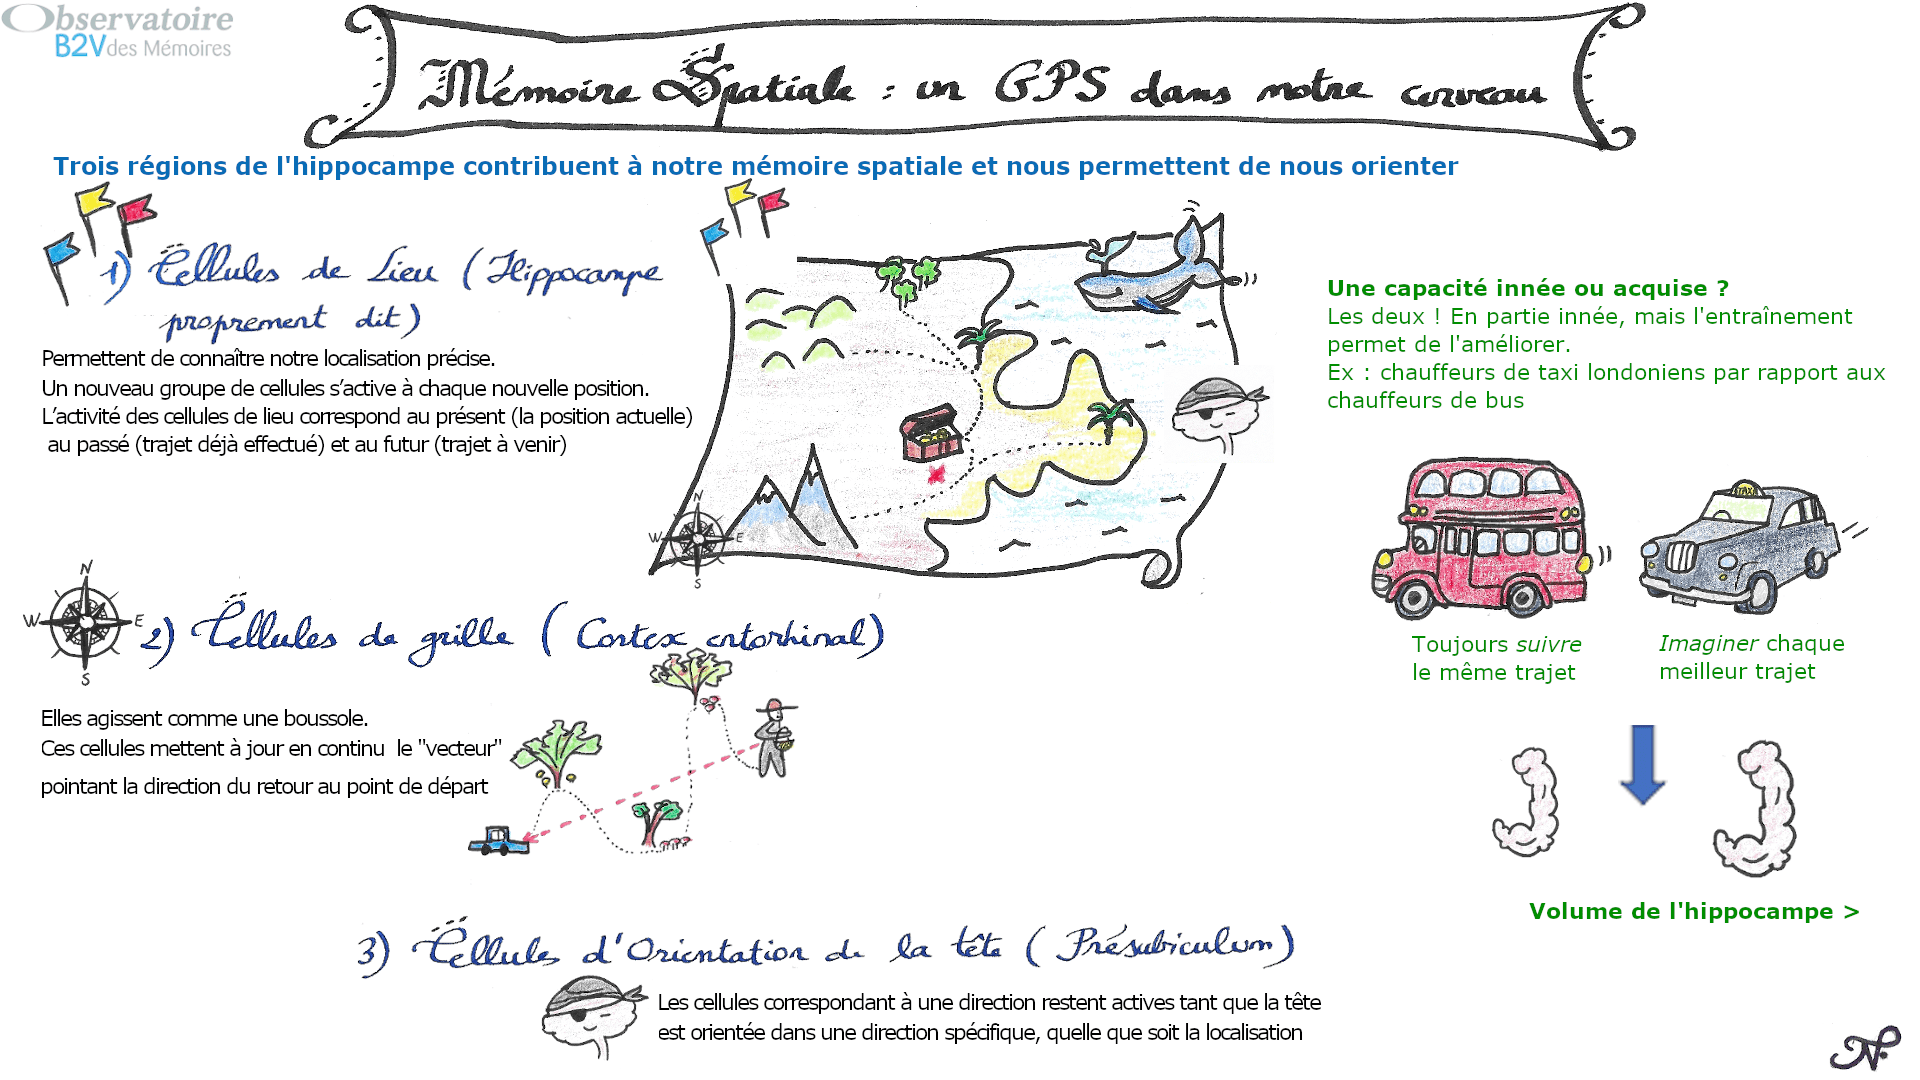 Observatoire
B2V des Mémoires
Mémoire Spatiale : un GPS dans notre cerveau
Trois régions de l'hippocampe contribuent à notre mémoire spatiale et nous permettent de nous orienter
1) Cellules de Lieu (Hippocampe
proprement dit)
Permettent de connaître notre localisation précise.
Un nouveau groupe de cellules s’active à chaque nouvelle position.
L’activité des cellules de lieu correspond au présent (la position actuelle)
au passé (trajet déjà effectué) et au futur (trajet à venir)
N
W E
S
N
W E
S
2) Cellules de grille (Cortex entorhinal)
Elles agissent comme une boussole.
Ces cellules mettent à jour en continu le "vecteur"
pointant la direction du retour au point de départ
3) Cellules d'Orientation de la tête (Présubiculum)
Les cellules correspondant à une direction restent actives tant que la tête
est orientée dans une direction spécifique, quelle que soit la localisation
Une capacité innée ou acquise ?
Les deux ! En partie innée, mais l'entraînement
permet de l'améliorer.
Ex : chauffeurs de taxi londoniens par rapport aux
chauffeurs de bus
TAXI
Toujours suivre
le même trajet
Imaginer chaque
meilleur trajet
Volume de l'hippocampe >
N.